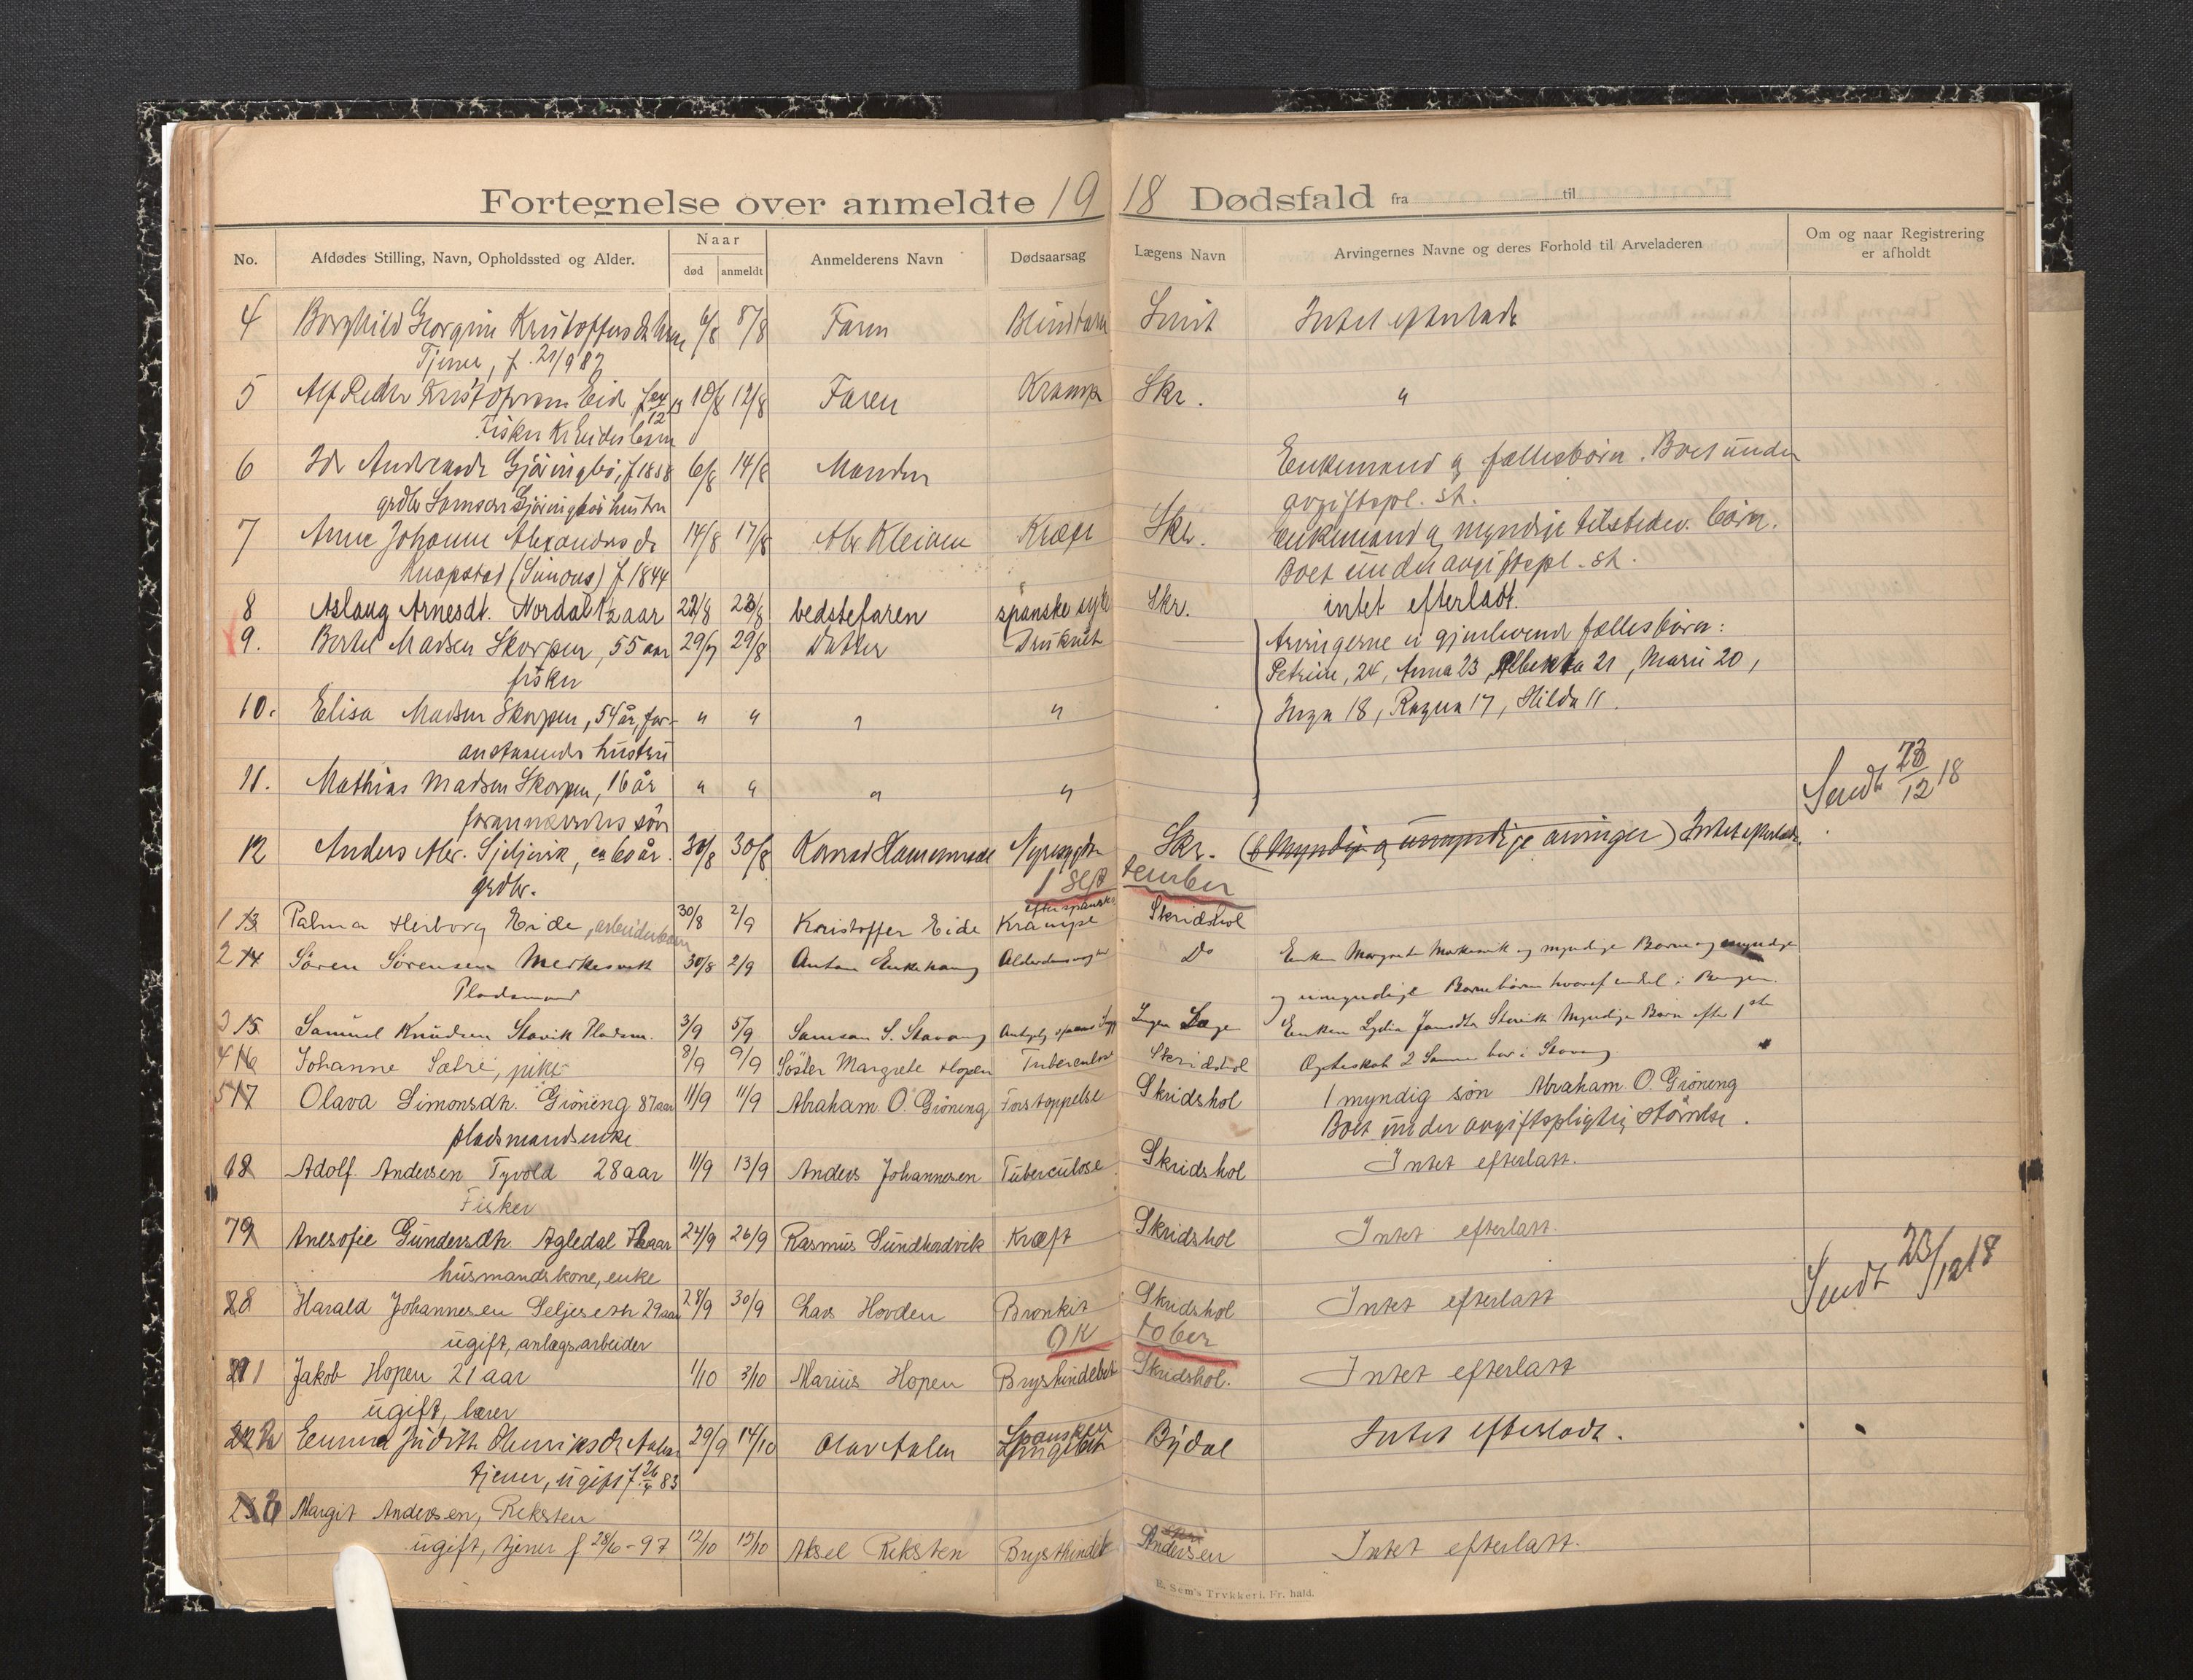 Fortegnelse over anmeldte 1918 Dødsfald fra til
No. Afdødes Stilling, Navn, Opholdssted og Alder. Naar død anmeldt Anmelderens Navn Dødsaarsag Lægens Navn Arvingernes Navne og deres Forhold til Arveladeren Om og naar Registrering er afholdt
4 Borghild Georgine 6/8 8/8 Faren Intet efterladt
Tjener, f. 21/9 87
5 Alf 10/8 12/8 Faren Krampe Skr. "
Fisker
6 Gjøringbø, f 1858 6/8 14/8 Manden Enkemand og fællesbörn. Boet under
grdbr Samson Gjøringbøs hustru avgiftspl. st.
7 Anne Johanne Alexandersdt 14/8 17/8 Alex Kleiven Kræft Skr. Enkemand og myndige tilstedev. börn.
Knapstad (Simons) f 1844 Boet under avgiftspl. st.
8 Aslaug Arnesdt. Nordal 1½ aar 22/8 23/8 bedstefaren spanske syke Skr. intet efterladt.
9. Bertel Madsen Skorpen, 55 aar 29/7 29/8 datter Druknet Arvingerne er gjenlevende fællesbörn:
fisker Petrine, 24, Anna 23, Albekka 21, Marie 20,
10. Elisa Madsen Skorpen, 54 år, for- " " " " Inga 18, Ragna 17, Hilda 11.
anstaaendes hustru
11. Mathias Madsen Skorpen, 16 år " " " " Sendt 23/12 18
forannævntes sön
12 Anders Alex. ca 60 år. 30/8 30/8 Konrad Hammersæt Nyresygdom Skr. (6 Myndige og umyndige arvinger) Intet efterladt
grdbr.
1 September
efter spanske
1 13 Palma Herborg Eide, arbeiderbarn 30/8 2/9 Kristoffer Eide Krampe Skridshol
2 14 Sören Sörensen Merkesvik 30/8 2/9 Anton Alderdomssvaghed Do Enken Margrete Merkesvik og myndige Börn og myndige
Pladsmand og umyndige Barnebörn hvoraf endel i Bergen.
3 15 Samuel Knudsen Stavik Pladsm. 3/9 5/9 Samson S. Stavang Ingen Læge Enken Lydia Jansdtr Stavik Myndige Börn efter 1ste
4 16 Johanne Sætre, pike 8/9 9/9 Söster Margrete Hopen Tuberculose Skridshol Ægteskab 2 Sönner bor i Stavang
5 17 Olava Simonsdtr. Gröneng 87 aar 11/9 11/9 Abraham O. Gröneng Forstoppelse Skridshol 1 myndig sön Abraham O. Gröneng
pladsmandsenke Boet under avgiftspligtig störrelse.
18 Adolf Andersen Tyvold 28 aar 11/9 13/9 Anders Johannesen Tuberculose Skridshol Intet efterlatt.
Fisker
79 Anesofie Gundersdtr. Agledal aar 24/9 26/9 Rasmus Sundhordvik Kræft Skridshol Intet efterlatt.
husmandskone, enke
28 Harald Johannesen Seljeseth 29 aar 28/9 30/9 Lars Hovden Bronkit Skridshol Intet efterlatt Sendt 23/12 18
ugift, anlægsarbeider
Oktober
21 1 Jakob Hopen 21 aar 1/10 3/10 Marius Hopen Brysthindebet Skridshol. Intet efterlatt
ugift, lærer
22 2 Emma Judith Henriksdt Aalen 29/9 14/10 Olav Aalen Spanske Lungebet Bydal Intet efterladt.
tjener, ugift f. 83
23 3 Margit Andersen, Reksten
ugift, tjener f 28/6 - 97 12/10 15/10 Aksel Reksten Brysthindeb Andersen Intet efterlatt.
E. Sem's Trykkeri, Fr. hald.